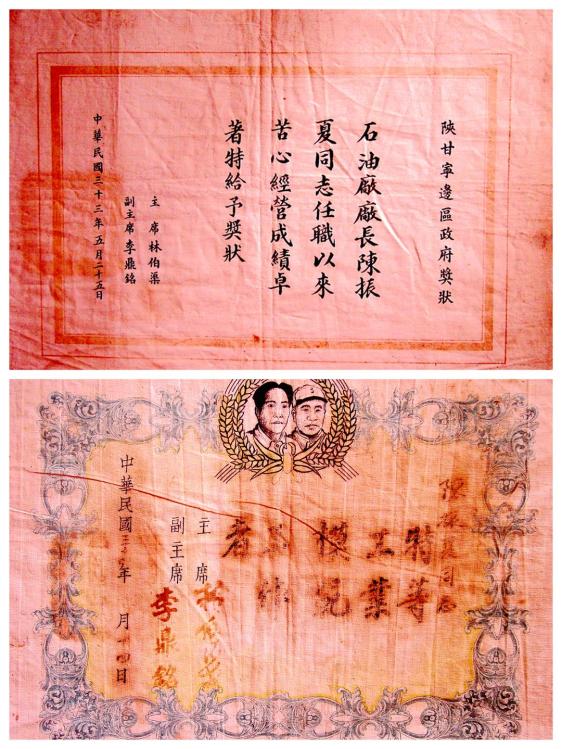 陝甘寧邊區政府獎狀
石油廠廠長陳振
夏同志任職以來
苦心經營成績卓
著特給予獎狀
主席林伯渠
副主席李鼎銘
中華民國三十三年五月二十五日
陳振夏同志
特等
工業
模範
工作
者
主席林伯渠
副主席李鼎銘
中華民國三十三年 月 日